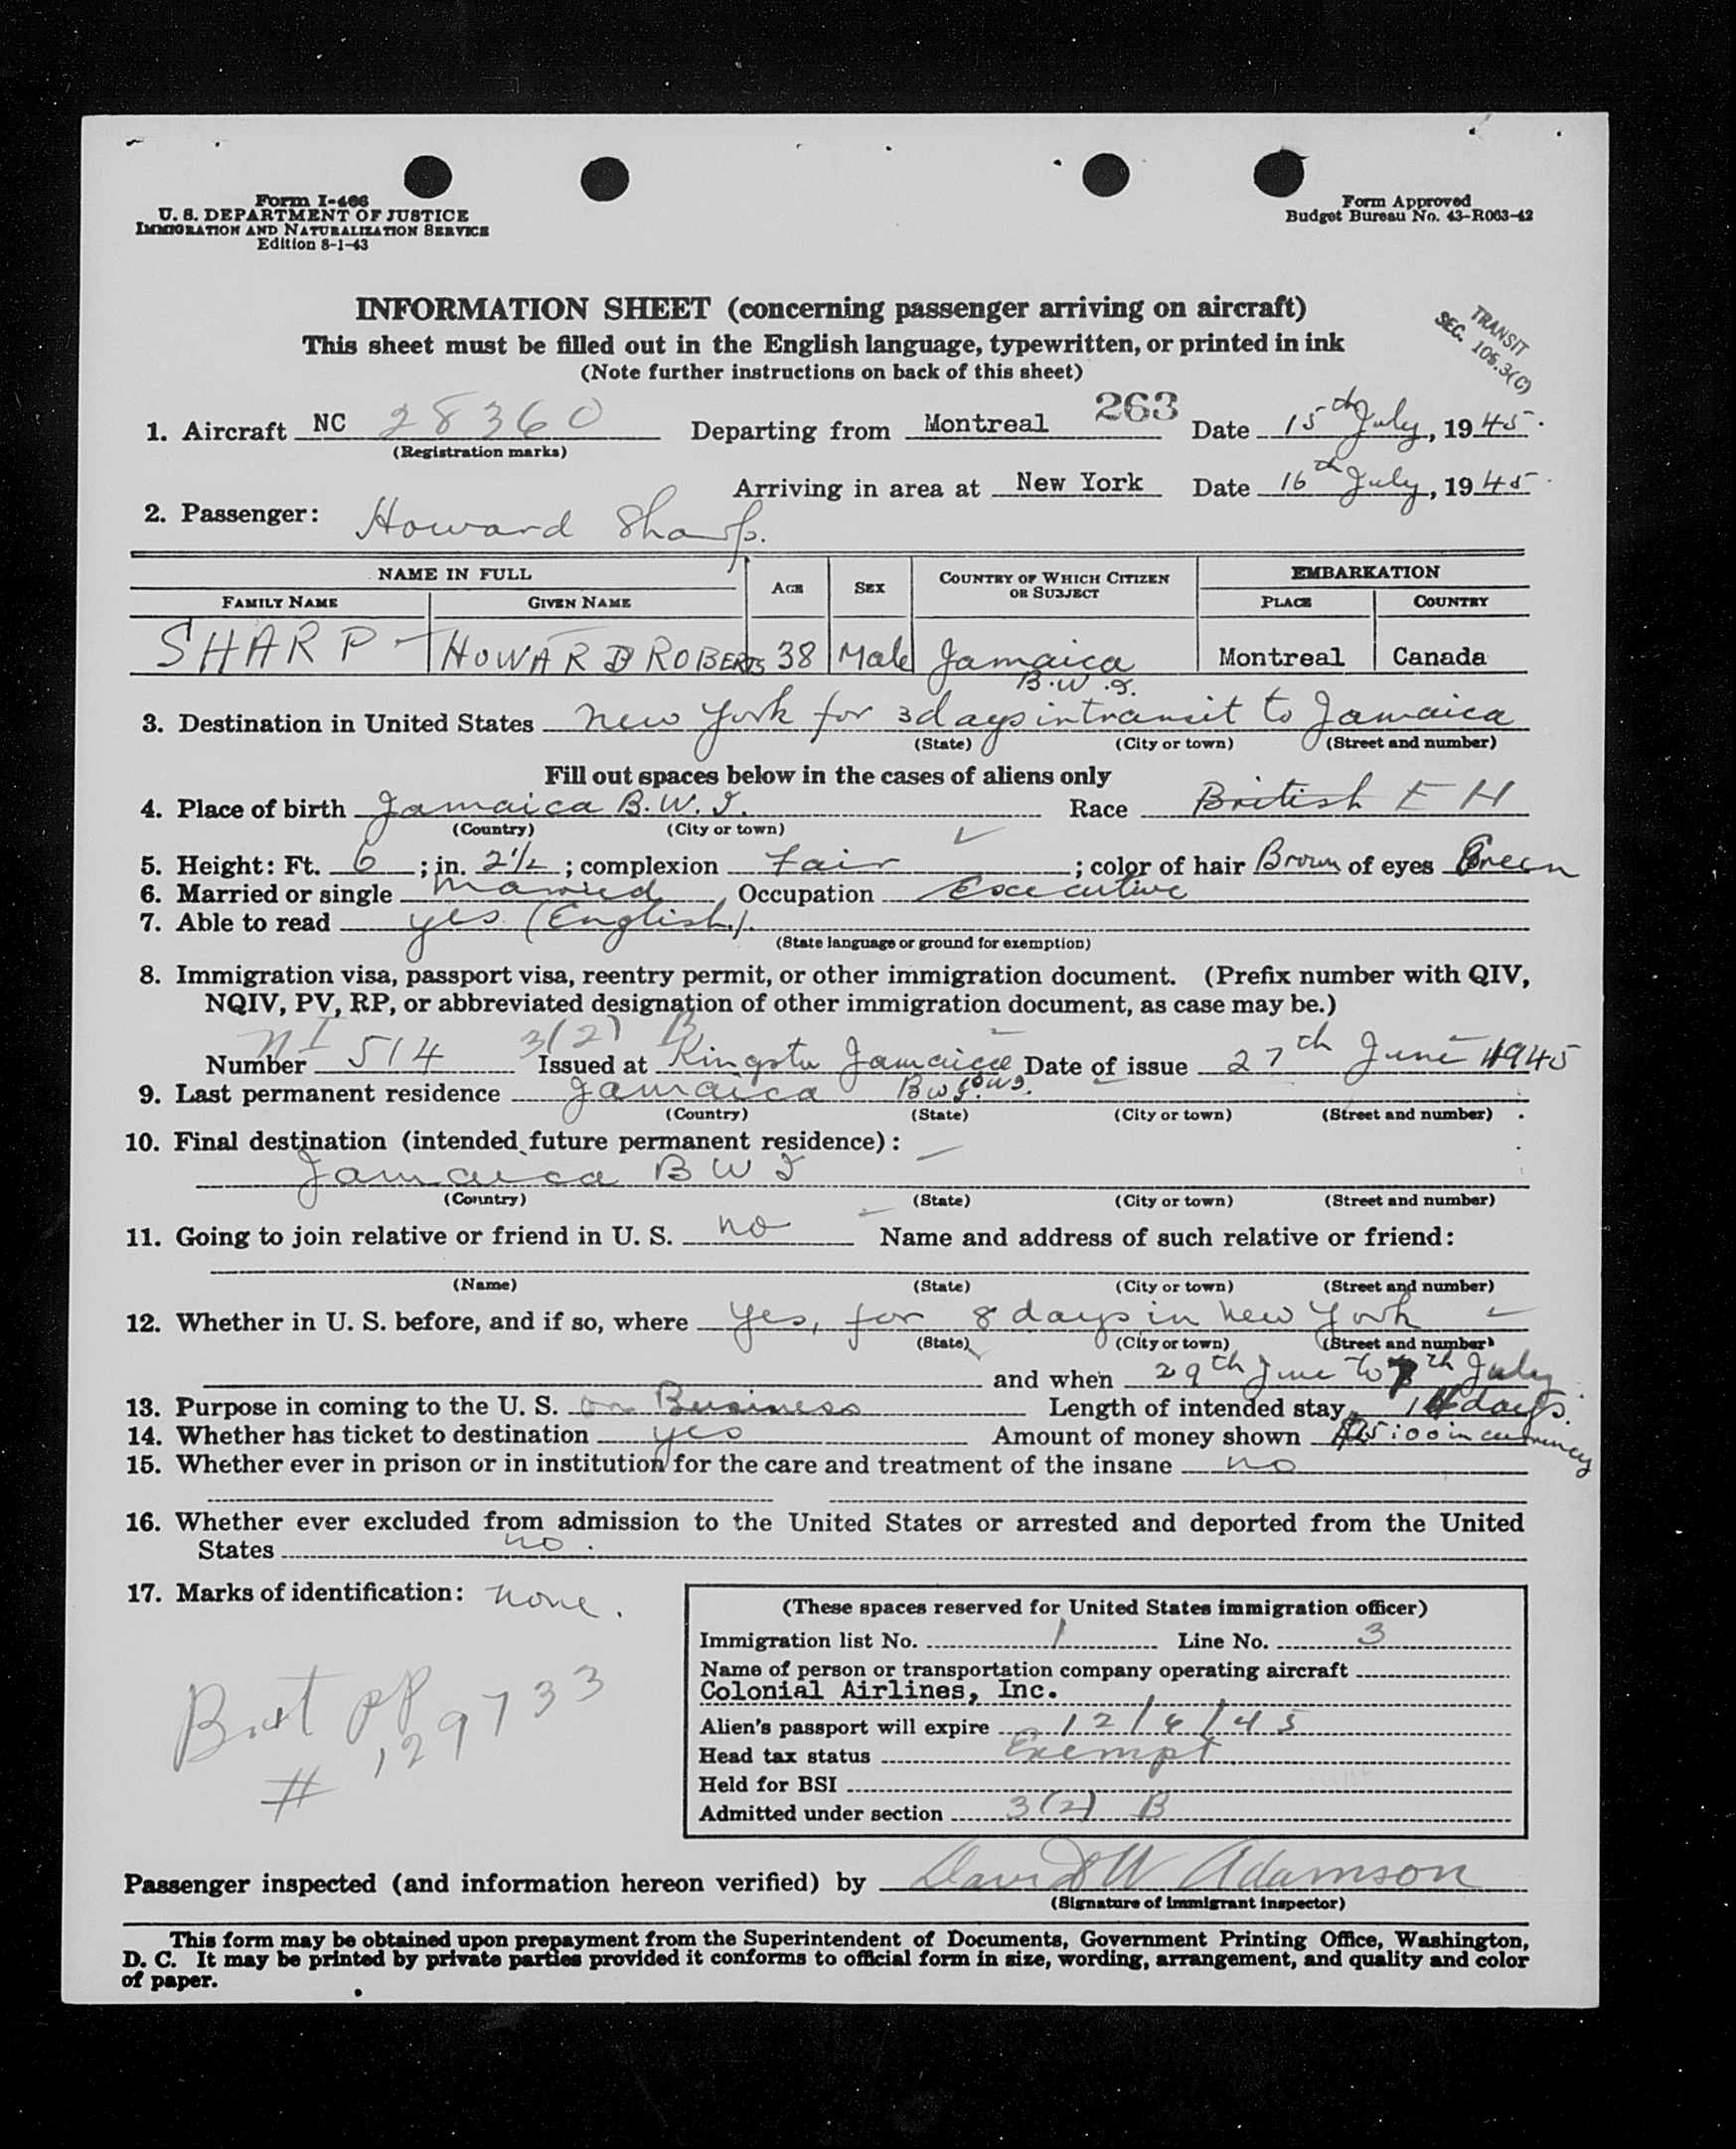 Form I-466
U. S. DEPARTMENT OF JUSTICE
IMMIGRATION AND NATURALIZATION SERVICE
Edition 8-1-43
Form Approved
Budget Bureau No. 43-R063-42
INFORMATION SHEET (concerning passenger arriving on aircraft)
This sheet must be filled out in the English language, typewritten, or printed in ink
(Note further instructions on back of this sheet)
TRANSIT
SEC. 105.3(C)
263
1. Aircraft NC 28360 Departing from Montreal Date 15th July, 1945.
(Registration marks)
Arriving in area at New York Date 16th July, 1945.
2. Passenger: Howard Sharp.
NAME IN FULL AGE SEX COUNTRY OF WHICH CITIZEN OR SUBJECT EMBARKATION
FAMILY NAME GIVEN NAME PLACE COUNTRY
SHARP - HOWARD ROBERTS 38 Male Jamaica B.W.I. Montreal Canada
3. Destination in United States New York for 3 days in transit to Jamaica
(State) (City or town) (Street and number)
Fill out spaces below in the cases of aliens only
4. Place of birth Jamaica B.W.I. Race British E H
(Country) (City or town)
5. Height: Ft. 6; in. 2½; complexion Fair; color of hair Brown of eyes Green
6. Married or single Married Occupation Executive
7. Able to read yes (English).
(State language or ground for exemption)
8. Immigration visa, passport visa, reentry permit, or other immigration document. (Prefix number with QIV,
NQIV, PV, RP, or abbreviated designation of other immigration document, as case may be.)
NI 3(2) B
Number 514 Issued at Kingston Jamaica Date of issue 27th June 1945
9. Last permanent residence Jamaica BWI.
(Country) (State) (City or town) (Street and number)
10. Final destination (intended future permanent residence):
Jamaica B W I
(Country) (State) (City or town) (Street and number)
11. Going to join relative or friend in U. S. no Name and address of such relative or friend:
(Name) (State) (City or town) (Street and number)
12. Whether in U. S. before, and if so, where Yes, for 8 days in New York
(State) (City or town) (Street and number)
and when 29th June to 7th July
13. Purpose in coming to the U. S. on Business Length of intended stay days.
14. Whether has ticket to destination yes Amount of money shown in currency
15. Whether ever in prison or in institution for the care and treatment of the insane no
16. Whether ever excluded from admission to the United States or arrested and deported from the United
States no.
17. Marks of identification: none.
Brit PP
# 129733
(These spaces reserved for United States immigration officer)
Immigration list No. 1 Line No. 3
Name of person or transportation company operating aircraft
Colonial Airlines, Inc.
Alien's passport will expire 12/6/45
Head tax status Exempt
Held for BSI
Admitted under section 3(2) B
Passenger inspected (and information hereon verified) by David W Adamson
(Signature of immigrant inspector)
This form may be obtained upon prepayment from the Superintendent of Documents, Government Printing Office, Washington,
D. C. It may be printed by private parties provided it conforms to official form in size, wording, arrangement, and quality and color
of paper.